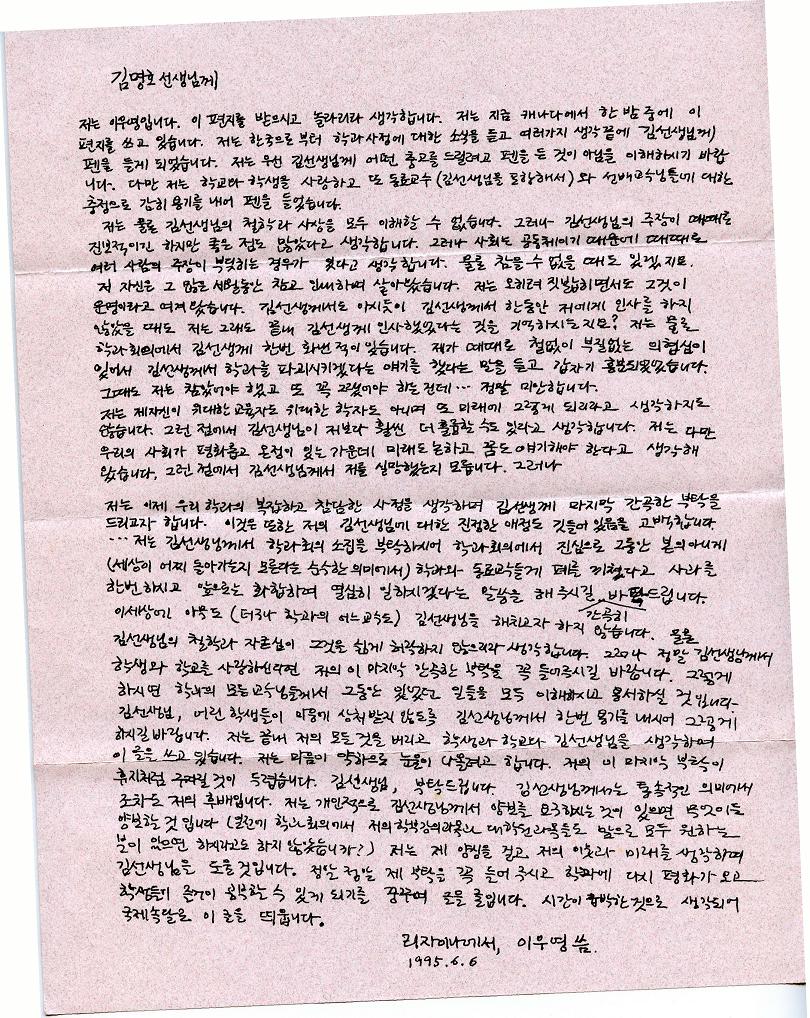 김명호 선생님께
저는 이우영입니다. 이 편지를 받으시고 놀라리라 생각합니다. 저는 지금 캐나다에서 한밤중에 이
편지를 쓰고 있습니다. 저는 한국으로부터 학과사정에 대한 소식을 듣고 여러가지 생각끝에 김선생님께
펜을 들게 되었습니다. 저는 우선 김선생님께 어떤 충고를 드릴려고 펜을 든 것이 아님을 이해하시기 바랍
니다. 다만 저는 학교와 학생을 사랑하고 또 동료교수(김선생님을 포함해서)와 선배교수님들에 대한
충정으로 감히 용기를 내어 펜을 들었습니다.
저는 물론 김선생님의 철학과 사상을 모두 이해할 수 없습니다. 그러나 김선생님의 주장이 때때로
진보적이긴 하지만 좋은 점도 많았다고 생각합니다. 그러나 사회는 공동체이기 때문에 때때로
여러 사람의 주장이 부딪히는 경우가 있다고 생각합니다. 물론 참을 수 없을 때도 있겠지요.
저 자신은 그 많은 세월동안 참고 인내하며 살아왔습니다. 저는 오히려 짓밟히면서도 그것이
운명이라고 여겨 왔습니다. 김선생께서도 아시듯이 김선생께서 한동안 저에게 인사를 하지
않았을 때도 저는 그래도 끝내 김선생께 인사했었다는 것을 기억하시는지요? 저는 물론
학과회의에서 김선생께 한번 화낸 적이 있습니다. 제가 때때로 철없이 부질없는 의협심이
있어서 김선생께서 학과를 파괴시키겠다는 얘기를 했다는 말을 듣고 갑자기 흥분되었었습니다.
그때도 저는 참았어야 했고 또 꼭 그랬어야 하는건데… 정말 미안합니다.
저는 제자신이 위대한 교육자도 위대한 학자도 아니며 또 미래에 그렇게 되리라고 생각하지도
않습니다. 그런 점에서 김선생님이 저보다 훨씬 더 훌륭할 수도 있다고 생각합니다. 저는 다만
우리의 사회가 평화롭고 온정이 있는 가운데 미래도 논하고 꿈도 얘기해야 한다고 생각해
왔습니다. 그런 점에서 김선생님께서 저를 실망했는지 모릅니다. 그러나
저는 이제 우리 학과의 복잡하고 참담한 사정을 생각하며 김선생께 마지막 간곡한 부탁을
드리고자 합니다. 이것은 또한 저의 김선생님에 대한 진정한 애정도 깃들어 있음을 고백합니다
… 저는 김선생님께서 학과회의 소집을 부탁하시어 학과회의에서 진심으로 그동안 본의아니게
(세상이 어찌 돌아가는지 모른다는 순수한 의미에서) 학과와 동료교수들께 폐를 끼쳤다고 사과를
한번 하시고 앞으로는 화합하며 열심히 일하시겠다는 말씀을 해 주시길 간곡히 바랍니다.
이세상에 아무도 (더구나 학과의 어느교수도) 김선생님을 해치고자 하지 않습니다. 물론
김선생님의 철학과 자존심이 그것을 쉽게 허락하지 않으리라 생각합니다. 그러나 정말 김선생님께서
학생과 학교를 사랑하신다면 저의 이 마지막 간곡한 부탁을 꼭 들어주시길 바랍니다. 그렇게
하시면 학과의 모든교수님들께서 그동안 있었던 일들을 모두 이해하시고 용서하실 것입니다.
김선생님, 어린 학생들이 마음에 상처받지 않도록 김선생님께서 한번 용기를 내시어 그렇게
하시길 바랍니다. 저는 끝내 저의 모든것을 버리고 학생과 학교와 김선생님을 생각하며
이 글을 쓰고 있습니다. 저는 마음이 약하므로 눈물이 나올려고 합니다. 저의 이 마지막 부탁이
휴지처럼 구겨질 것이 두렵습니다. 김선생님, 부탁드립니다. 김선생님께서는 통속적인 의미에서
조차도 저의 후배입니다. 저는 개인적으로 김선생님께서 양보를 요구하시는 것이 있으면 무엇이든
양보할 것입니다 (일전에 학과회의에서 저의 학부강의과목도 대학원과목들도 앞으로 모두 원하는
분이 있으면 하시라고도 하지 않았습니까?) 저는 제 양심을 걸고, 저의 이웃과 미래를 생각하며
김선생님을 도울 것입니다. 정말 정말 제 부탁을 꼭 들어 주시고 학과에 다시 평화가 오고
학생들이 즐거이 공부할 수 있게 되기를 꿈꾸며 글을 줄입니다. 시간이 급박한것으로 생각되어
국제속달로 이 글을 띄웁니다.
리자이나에서, 이우영 씀.
1995.6.6